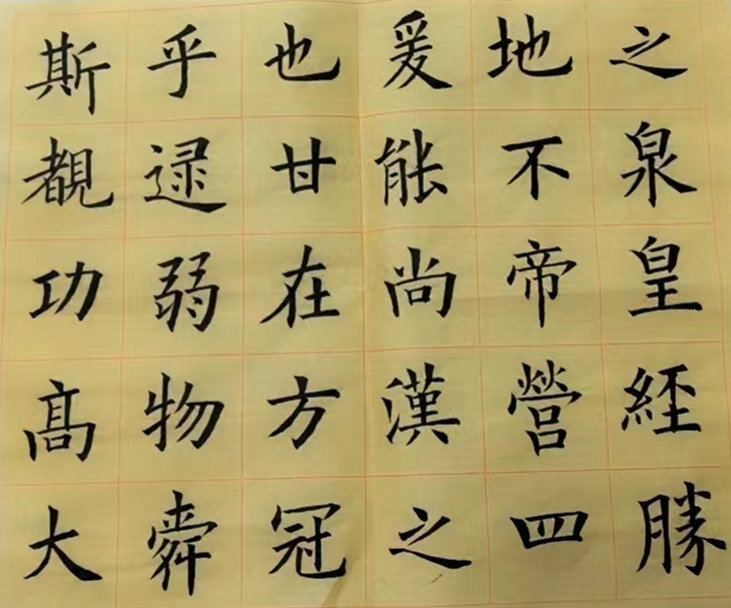 之泉皇經勝
地不帝營四
爰能尚漢之
也甘在方冠
乎逮弱物舜
斯覩功髙大